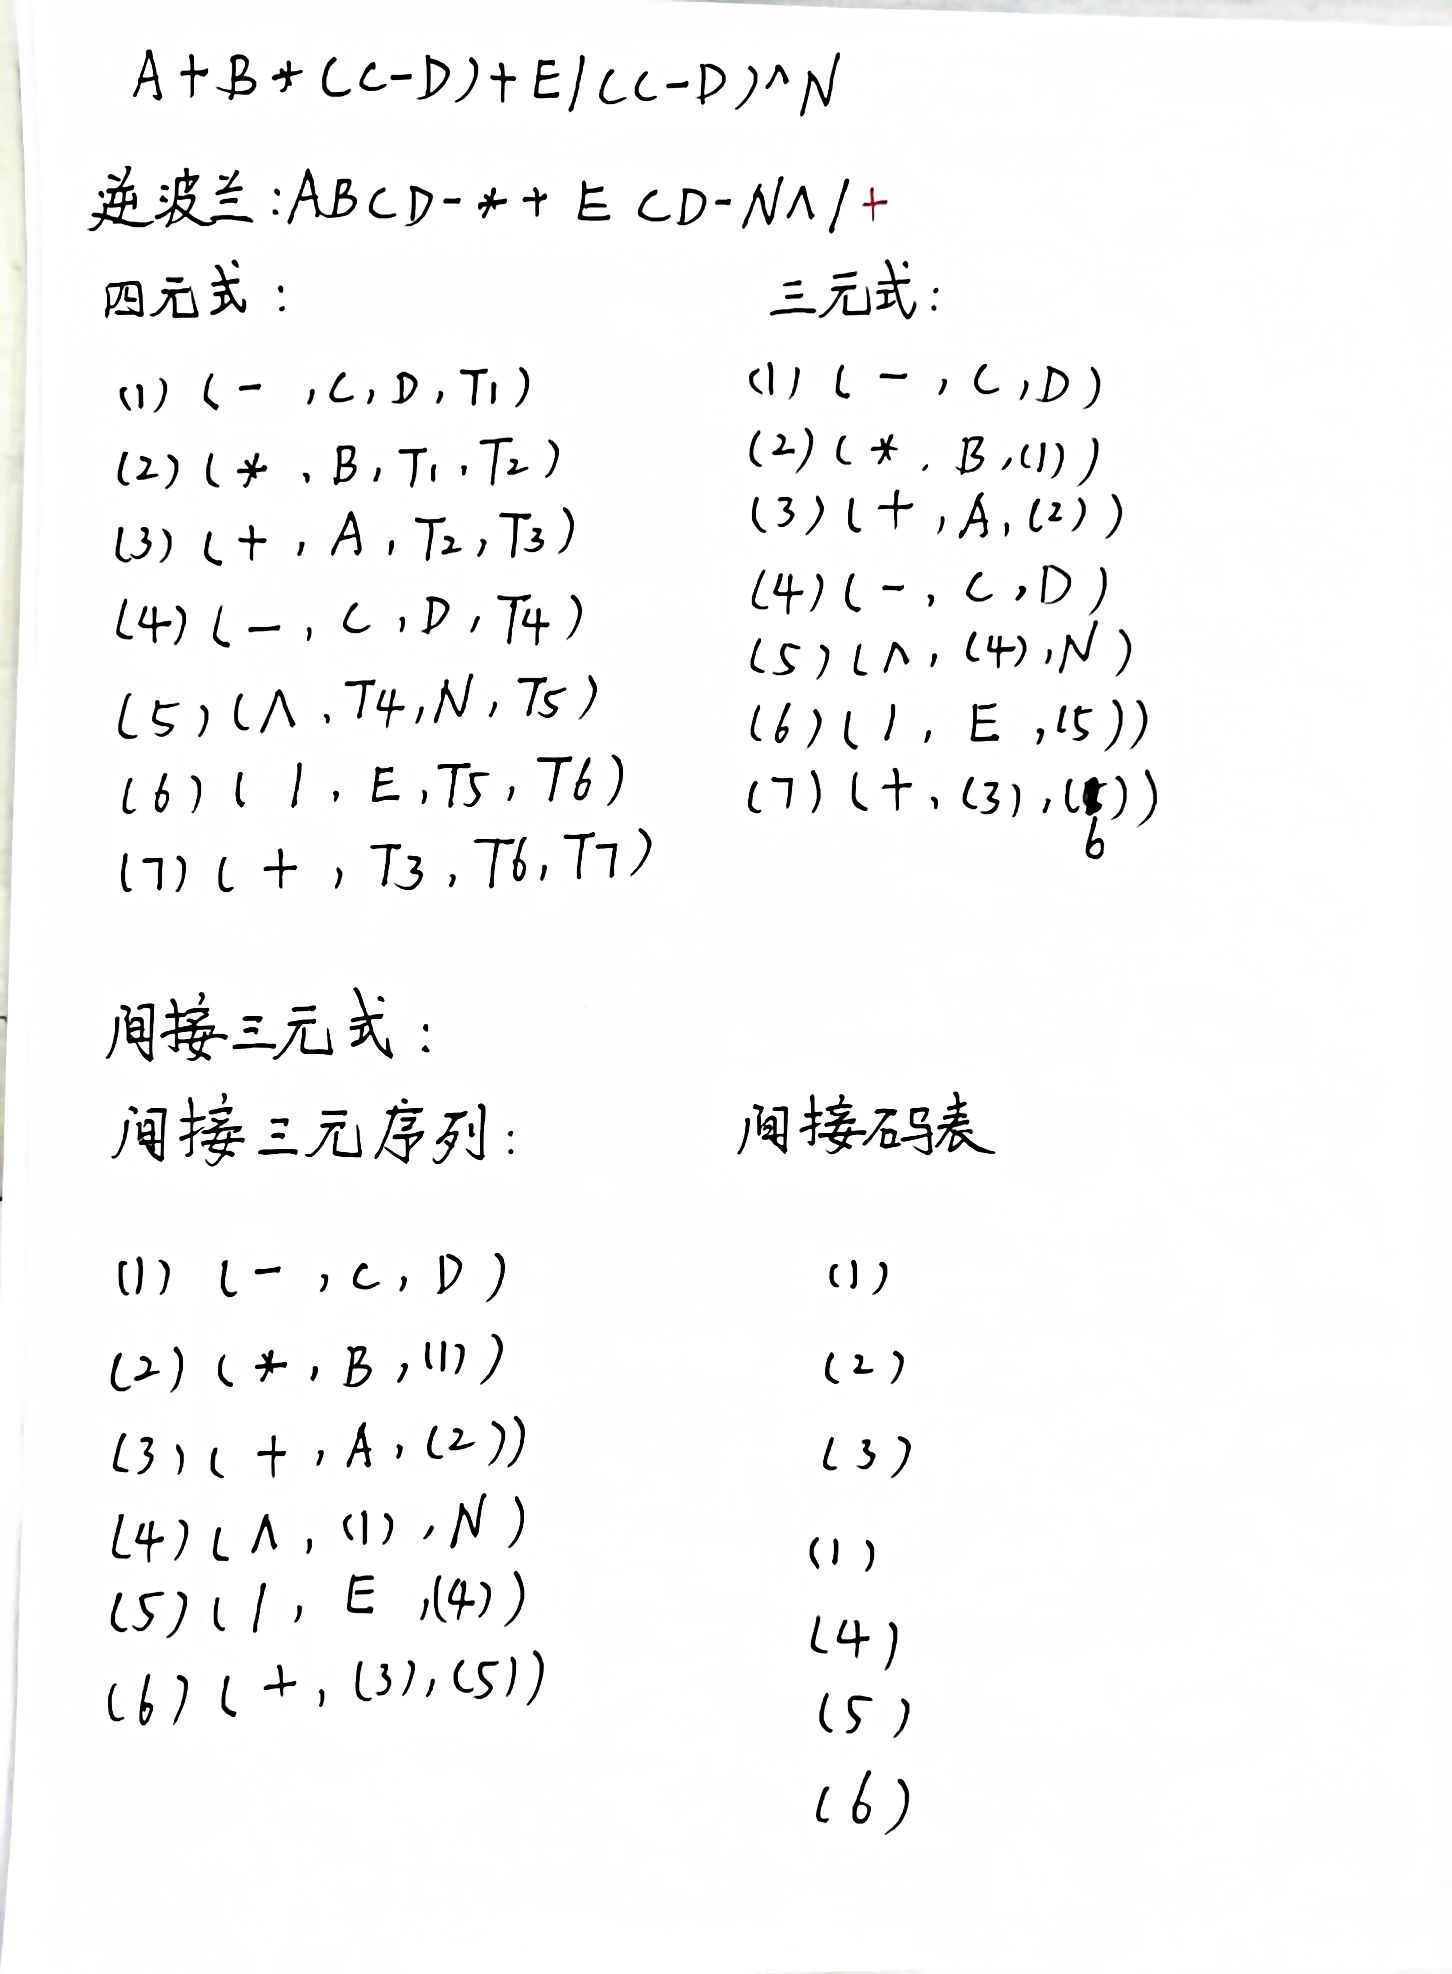 A+B*(C-D)+E/(C-D)^N
逆波兰:ABCD-*+ECD-N∧/+
四元式:
(1)(-,C,D,T1)
(2)(*,B,T1,T2)
(3)(+,A,T2,T3)
(4)(-,C,D,T4)
(5)(∧,T4,N,T5)
(6)(/,E,T5,T6)
(7)(+,T3,T6,T7)
三元式:
(1)(-,C,D)
(2)(*,B,(1))
(3)(+,A,(2))
(4)(-,C,D)
(5)(∧,(4),N)
(6)(/,E,(5))
(7)(+,(3),(6))
间接三元式:
间接三元序列:
(1)(-,C,D)
(2)(*,B,(1))
(3)(+,A,(2))
(4)(∧,(1),N)
(5)(/,E,(4))
(6)(+,(3),(5))
间接码表
(1)
(2)
(3)
(1)
(4)
(5)
(6)